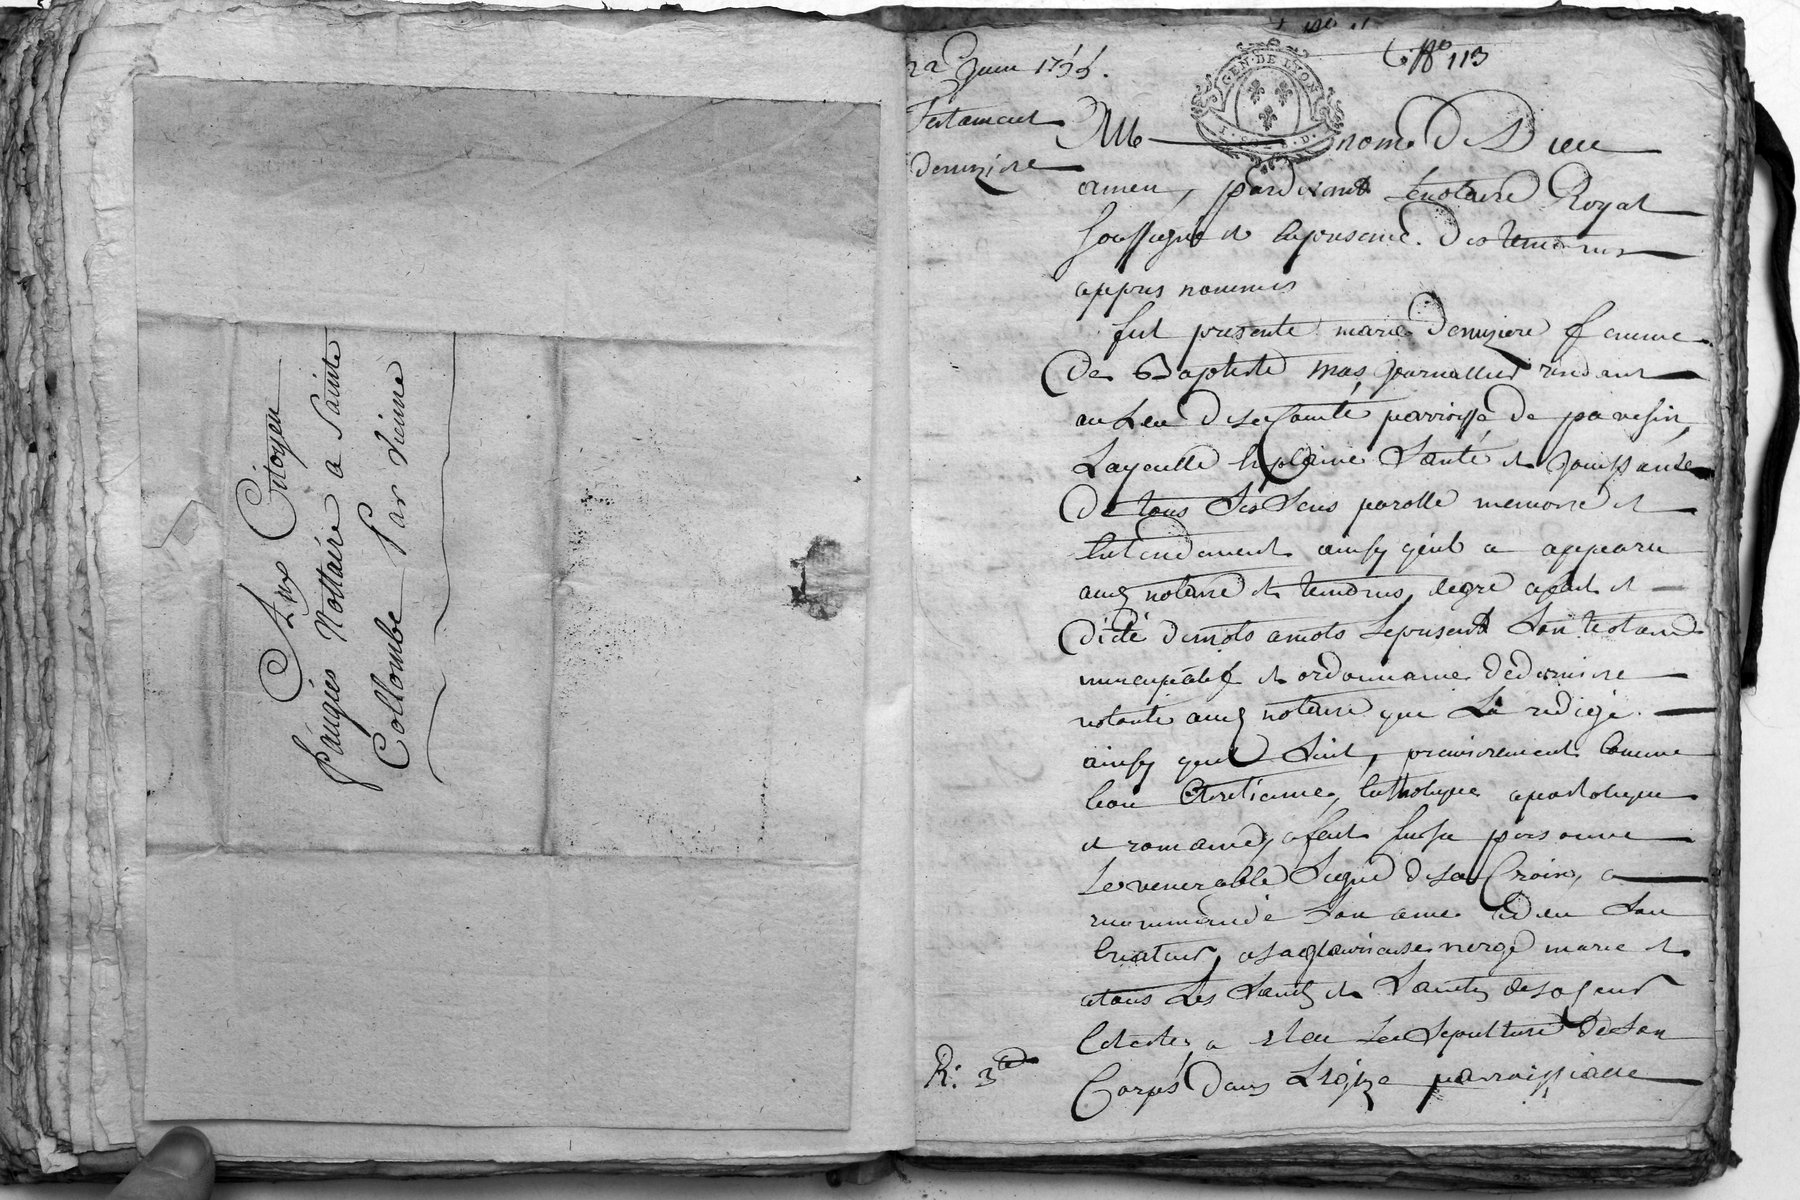 Aux Citoyen
Paugies Nottaire a Sainte
Collombe Par Vienne
22e Juin 1755.
Testament
demiziere
No 113
GEN. DE LYON
Au nom de Dieu
amen, pardevant le notaire Royal
soussigné et en presence des temoins
appres nommés
fut presente marie demiziere femme
de Baptiste mas journallier residant
au lieu de la parroisse de pavesin,
Laquelle en plaine santé et jouissante
de tous ses sens parolle memoire et
entendement ainsy quil a apparu
auxd notaire et temoins, degré a fait et
dicté de mots a mots le present son testament
nuncupatif et ordonnance de derniere
volonté aud notaire qui la redigé
ainsy que suit, premierement comme
bon chretienne, catholique apostolique
et romaine, a fait sur sa personne
le venerable signe de la Croix, a
recommandé son ame a dieu son
createur, a la glorieuse vierge marie et
a tous les saints et saintes de la cour
celeste, a eleu la sepulture de son
corps dans leglize parroissialle
R: 3